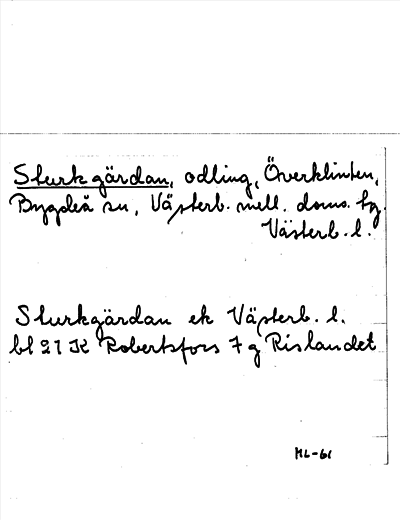 Slurkgärdan, odling, Överklinten,
Bygdeå sn, Västerb. mell. doms. hg.
Västerb. l.
Slurkgärdan ek Västerb. l.
bl 21 K Robertsfors 7 g Rislandet
ML-61